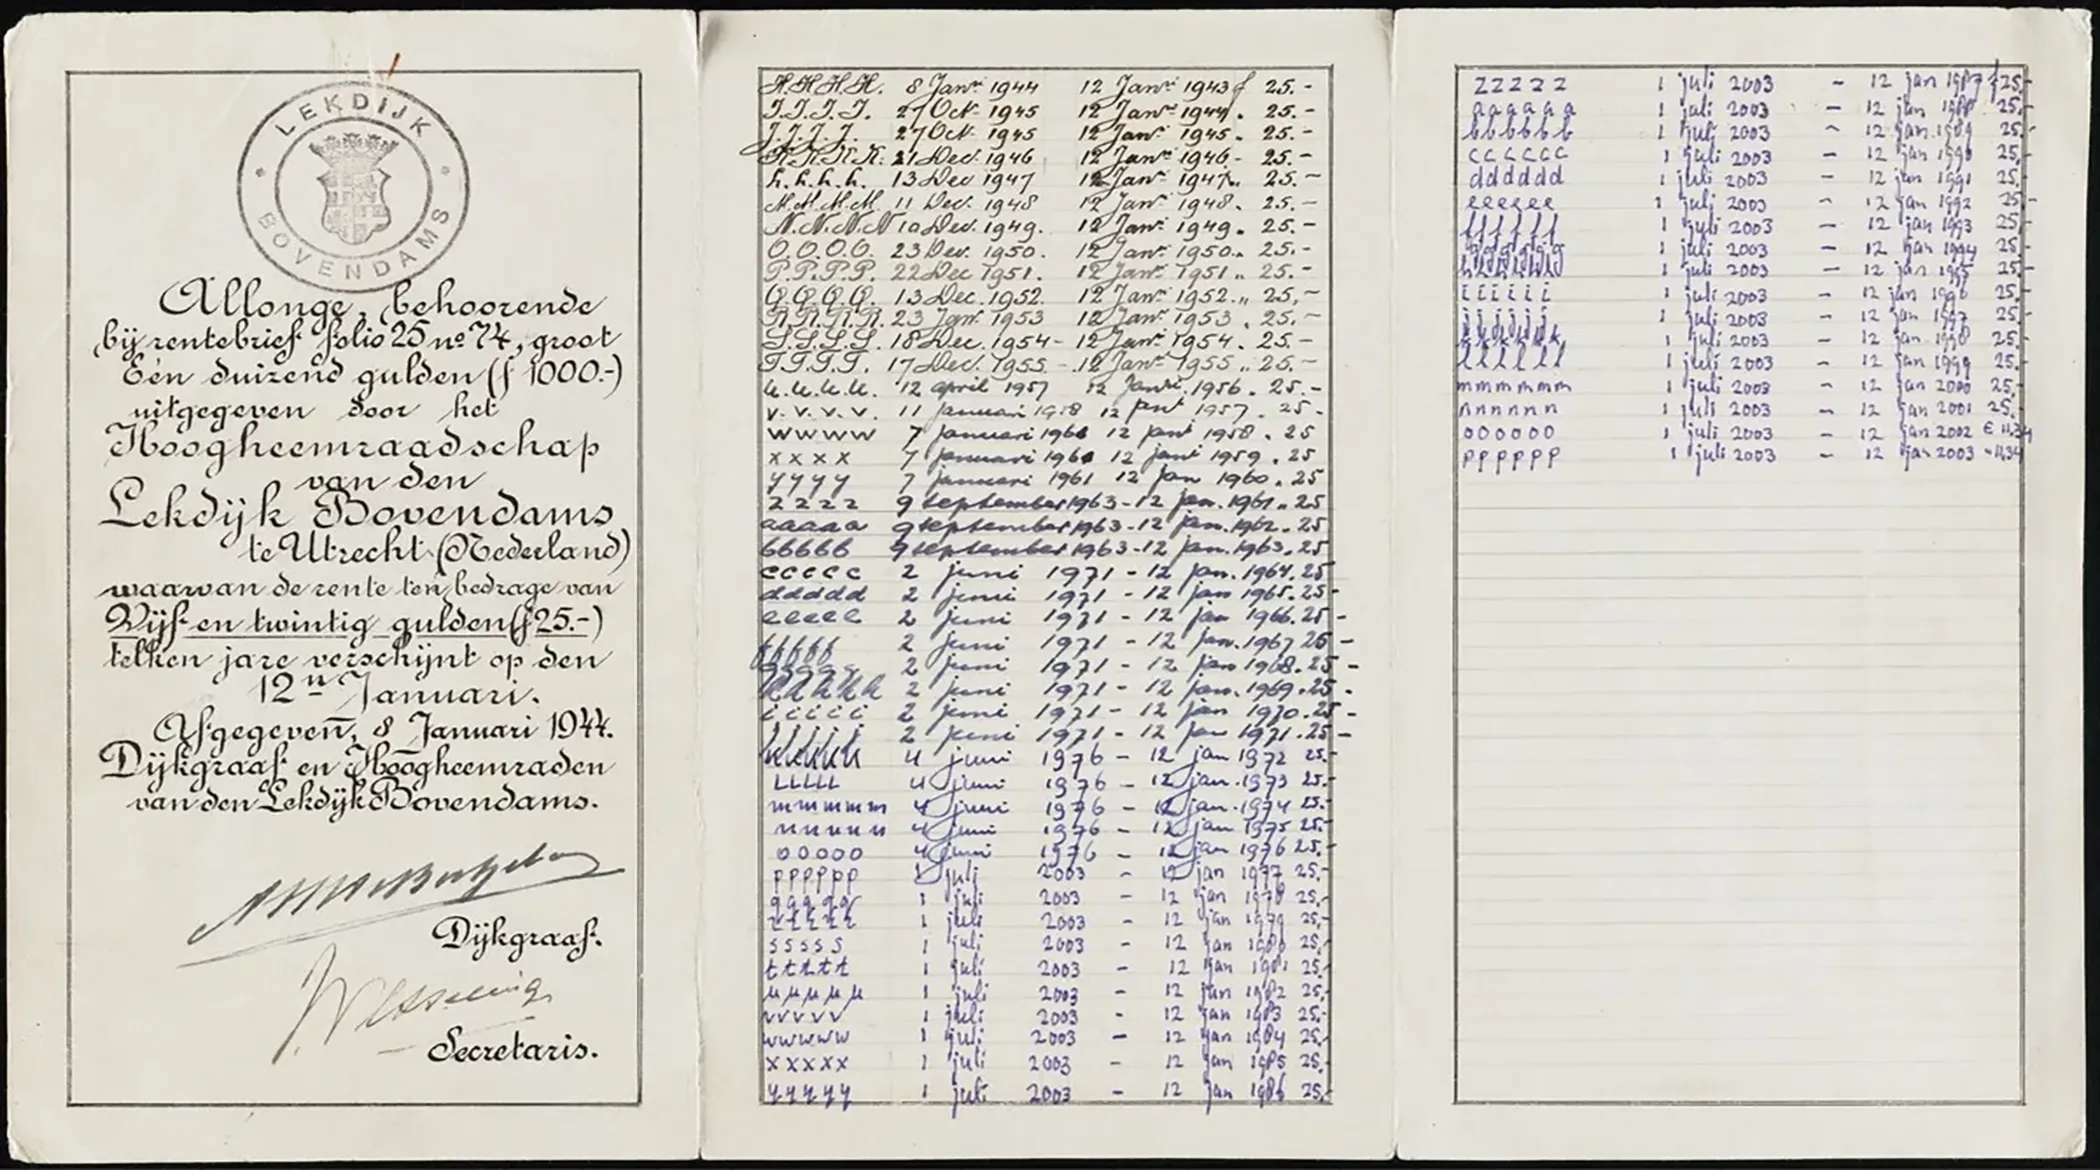 LEKDIJK
BOVENDAMS
Allonge, behoorende
bij rentebrief folio 25 no 74, groot
Eén duizend gulden (f 1000.-)
uitgegeven door het
Hoogheemraadschap
van den
Lekdijk Bovendams
te Utrecht (Nederland)
waarvan de rente ten bedrage van
Vijf en twintig gulden (f 25.-)
telken jare verschijnt op den
12n Januari.
Afgegeven, 8 Januari 1944.
Dijkgraaf en Hoogheemraden
van den Lekdijk Bovendams.
Dijkgraaf.
Secretaris.
H.H.H.H. 8 Janri 1944 12 Janri 1943 f 25.-
I.I.I.I. 27 Oct. 1945 12 Janri 1944. 25.-
J.J.J.J. 27 Oct. 1945 12 Janri 1945. 25.-
K.K.K.K. 21 Dec. 1946 12 Janri 1946.- 25.-
L.L.L.L. 13 Dec 1947 12 Janri 1947.. 25.-
M.M.M.M. 11 Dec. 1948 12 Janri 1948. 25.-
N.N.N.N 10 Dec. 1949. 12 Janri 1949. 25.-
O.O.O.O. 23 Dec. 1950. 12 Janri 1950.. 25.-
P.P.P.P. 22 Dec 1951. 12 Janri 1951.. 25.-
Q.Q.Q.Q. 13 Dec. 1952. 12 Janri 1952.. 25,-
R.R.R.R. 23 Jan. 1953 12 Janri 1953. 25.-
S.S.S.S. 18 Dec. 1954 - 12 Janri 1954. 25.-
T.T.T.T. 17 Dec. 1955 - 12 Janri 1955.. 25.-
U.U.U.U. 12 april 1957 12 Janri. 1956. 25.-
V.V.V.V. 11 Januari 1958 12 Janri 1957. 25.-
WWWW 7 Januari 12 Janri 1958. 25
XXXX 7 Januari 12 Janri 1959. 25
yyyy 7 Januari 1961 12 Jan 1960. 25
ZZZZ 9 September 1963 - 12 Jan. 1961.. 25
aaaaa 9 September 1963 - 12 Jan. 1962. 25
bbbbb 9 September 1963 - 12 Jan. 1963. 25
ccccc 2 juni 1971 - 12 jan. 1964. 25
ddddd 2 juni 1971 - 12 jan 1965. 25-
eeeee 2 juni 1971 - 12 jan 1966. 25-
fffff 2 juni 1971 - 12 jan. 1967 25-
ggggg 2 juni 1971 - 12 jan 1968. 25-
hhhhh 2 juni 1971 - 12 jan. 1969. 25-
iiiii 2 juni 1971 - 12 jan 1970. 25-
jjjjj 2 juni 1971 - 12 jan 1971. 25-
kkkkk 4 juni 1976 - 12 jan 1972 25.-
LLLLL 4 juni 1976 - 12 jan. 1973 25.-
mmmmm 4 juni 1976 - 12 jan. 1974 25.-
nnnnn 4 juni 1976 - 12 jan 1975 25.-
ooooo 4 juni 1976 - 12 jan 1976 25.-
pppppp 1 juli 2003 - 12 jan 1977 25,-
qqqqq 1 juli 2003 - 12 jan 1978 25,-
rrrrr 1 juli 2003 - 12 jan 1979 25,-
sssss 1 juli 2003 - 12 jan 1980 25,-
ttttt 1 juli 2003 - 12 jan 1981 25,-
uuuuu 1 juli 2003 - 12 jan 1982 25,-
vvvvv 1 juli 2003 - 12 jan 1983 25,-
wwwww 1 juli 2003 - 12 jan 1984 25,-
xxxxx 1 juli 2003 - 12 jan 1985 25,-
yyyyy 1 juli 2003 - 12 jan 1986 25,-
zzzzz 1 juli 2003 - 12 jan 1987 f 25,-
aaaaaa 1 juli 2003 - 12 jan 1988 25,-
bbbbbb 1 juli 2003 - 12 jan 1989 25,-
cccccc 1 juli 2003 - 12 jan 1990 25,-
dddddd 1 juli 2003 - 12 jan 1991 25,-
eeeeee 1 juli 2003 - 12 jan 1992 25,-
ffffff 1 juli 2003 - 12 jan 1993 25,-
gggggg 1 juli 2003 - 12 jan 1994 25,-
hhhhhh 1 juli 2003 - 12 jan 1995 25,-
iiiiii 1 juli 2003 - 12 jan 1996 25,-
jjjjjj 1 juli 2003 - 12 jan 1997 25,-
kkkkkk 1 juli 2003 - 12 jan 1998 25,-
llllll 1 juli 2003 - 12 jan 1999 25,-
mmmmmm 1 juli 2003 - 12 jan 2000 25,-
nnnnnn 1 juli 2003 - 12 jan 2001 25,-
oooooo 1 juli 2003 - 12 jan 2002 € 11,34
pppppp 1 juli 2003 - 12 jan 2003 - 11,34